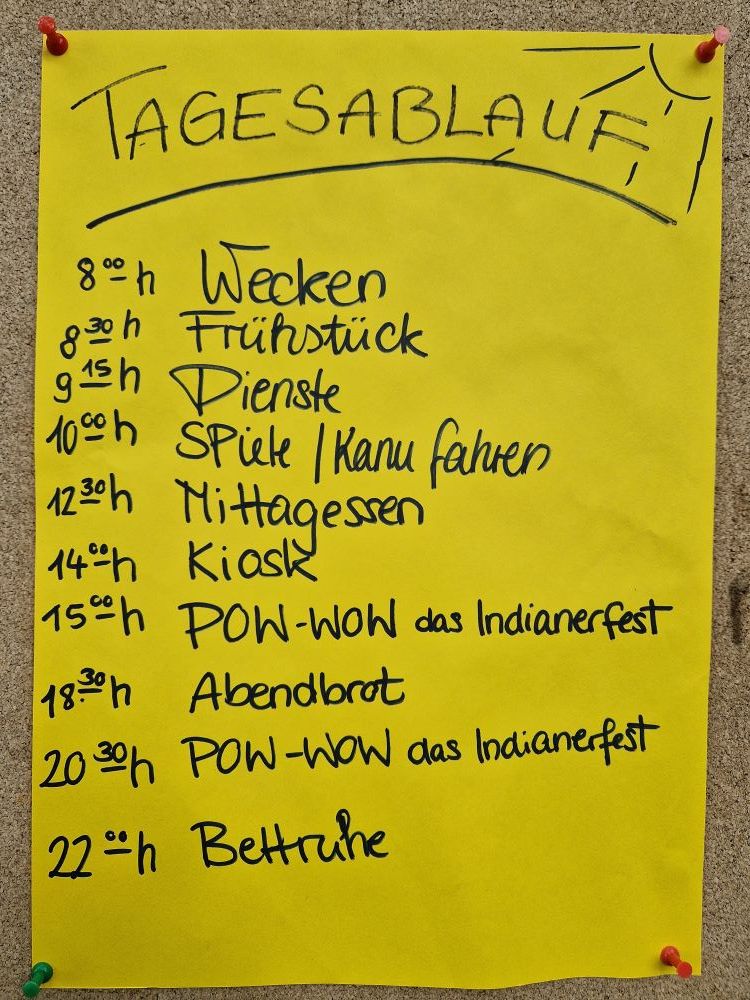 TAGESABLAUF
8 00 h Wecken
8 30 h Frühstück
9 15 h Dienste
10 00 h SPiele / Kanu fahren
12 30 h Mittagessen
14 00 h Kiosk
15 00 h POW-WOW das Indianerfest
18 30 h Abendbrot
20 30 h POW-WOW das Indianerfest
22 00 h Bettruhe